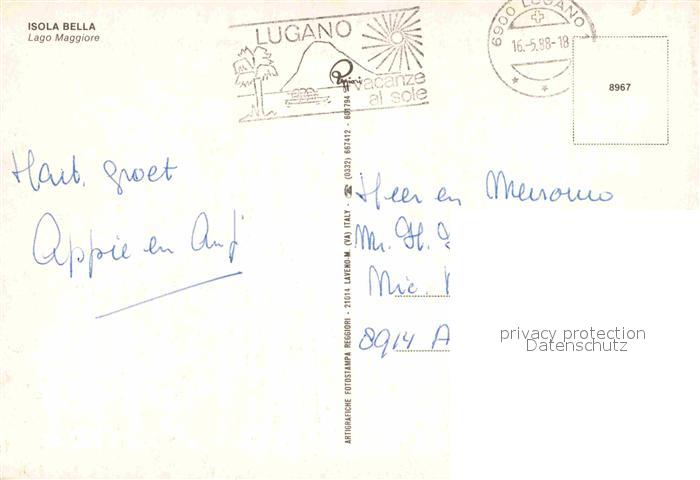 ISOLA BELLA
Lago Maggiore
LUGANO
vacanze
al sole
6900 LUGANO 1
16.-5.88-18
8967
Hart. groet
Appie en
ARTIGRAFICHE FOTOSTAMPA REGGIORI - 21014 LAVENO-M. (VA) ITALY - ☎ (0332) 667412 - 601794
Heer en
Mr. H.
8914 A
privacy protection
Datenschutz